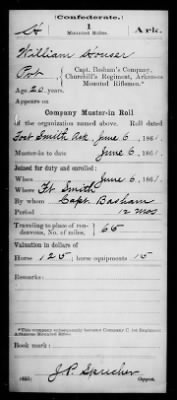 (Confederate.)
H 1 Ark.
Mounted Rifles.
William Houser
Pvt, Capt. Basham's Company,
Churchill's Regiment, Arkansas
Mounted Riflemen.*
Age 20 years.
Appears on
Company Muster-in Roll
of the organization named above. Roll dated
Fort Smith Ark June 6, 1861.
Muster-in to date June 6, 1861.
Joined for duty and enrolled:
When June 6, 1861.
Where Ft Smith
By whom Capt. Basham
Period 12 mos
Traveling to place of rendezvous, No. of miles, 65
Valuation in dollars of
Horse 125; horse equipments 15
Remarks:
*This company subsequently became Company C 1st Regiment
Arkansas Mounted Rifles.
Book mark:
J.P. Spricher
Copyist.